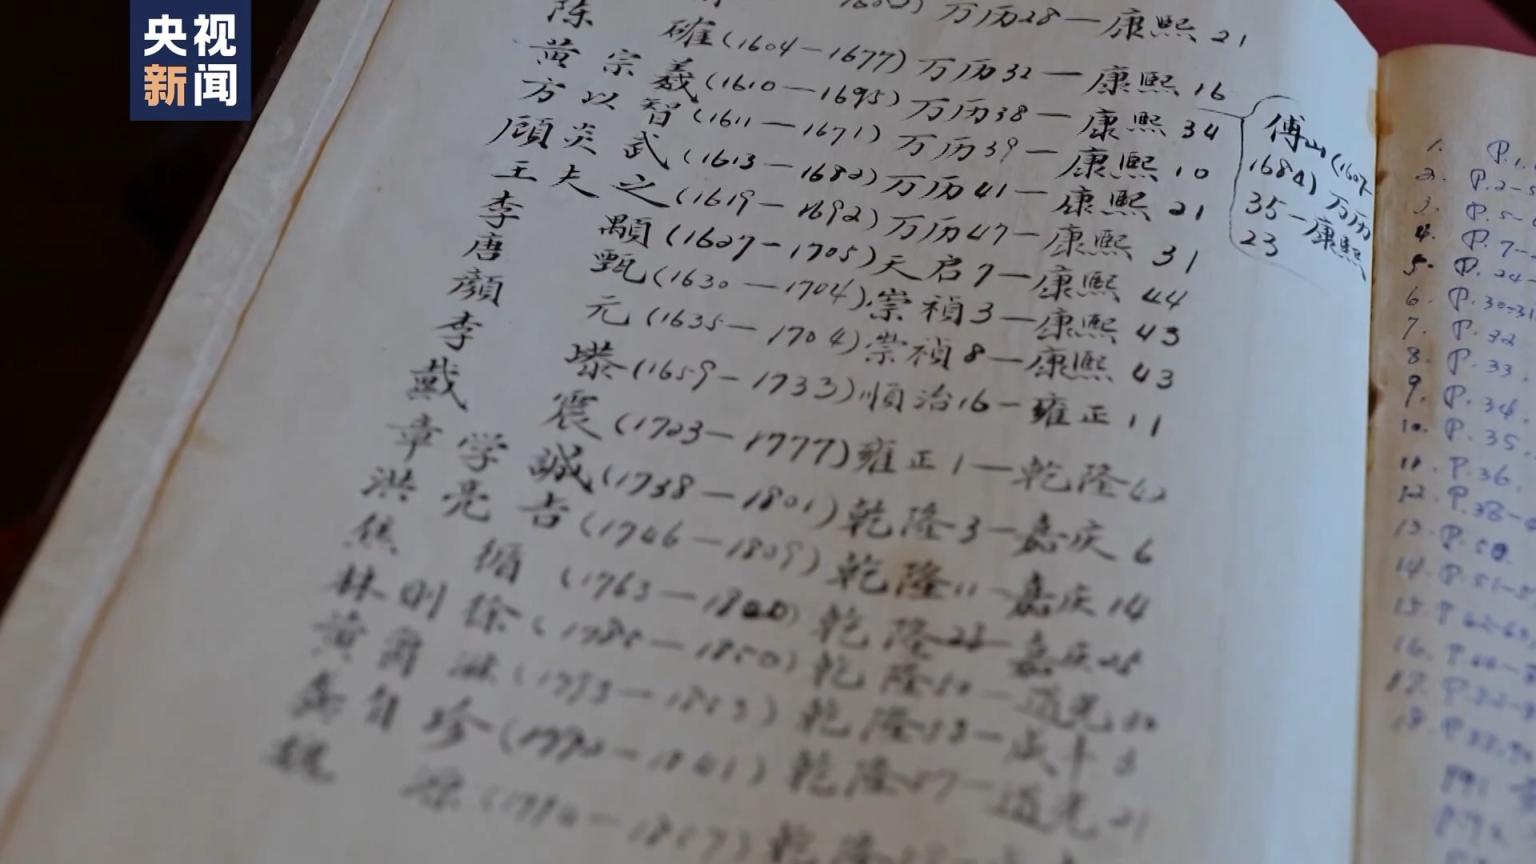 央视
新闻
万历28—康熙21
陈 確(1604—1677)万历32—康熙16
黄宗羲(1610—1695)万历38—康熙34
方以智(1611—1671)万历39—康熙10
顾炎武(1613—1682)万历41—康熙21
王夫之(1619—1692)万历47—康熙31
李 顒(1627—1705)天启7—康熙44
唐 甄(1630—1704)崇禎3—康熙43
顏 元(1635—1704)崇禎8—康熙43
李 塨(1659—1733)順治16—雍正11
戴 震(1723—1777)雍正1—乾隆42
章学誠(1738—1801)乾隆3—嘉庆6
洪亮吉(1746—1809)乾隆11—嘉庆14
焦 循(1763—1820)乾隆—嘉庆25
林则徐(1785—1850)乾隆50—道光30
黄爵滋(1793—1853)乾隆58—咸丰3
龚自珍(1792—1841)乾隆57—道光21
魏 源(1794—1857)乾隆
傅山(1607—
1684)万历
35—康熙
23
1. P.1.
2. P.2-5
3. P.5-
4. P.7-
5. P.24-
6. P.30-31
7. P.32
8. P.33.
9. P.34.
10. P.35.
11. P.36.
12. P.38-
13. P.50
14. P.51-5
15. P.62-63
16. P.
17. P.
18. P.